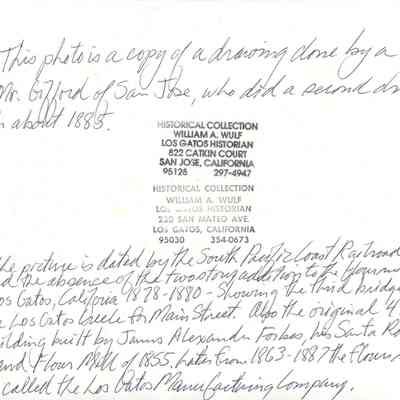 This photo is a copy of a drawing done by a
Mr. Gifford of San Jose, who did a second
about 1885.
HISTORICAL COLLECTION
WILLIAM A. WULF
LOS GATOS HISTORIAN
822 CATKIN COURT
SAN JOSE, CALIFORNIA
95128 297-4947
HISTORICAL COLLECTION
WILLIAM A. WULF
LOS GATOS HISTORIAN
220 SAN MATEO AVE.
LOS GATOS, CALIFORNIA
95030 354-0673
picture is dated by the South Pacific Coast Railroad
the absence of the two story addition to the
Los Gatos, California 1878-1880 - Showing the third bridge
Los Gatos Creek for Main Street. Also the original 4
building built by James Alexander Forbes, his Santa
and Flour Mill of 1855. Later from 1863-1887 the Flour
called the Los Gatos Manufacturing Company.